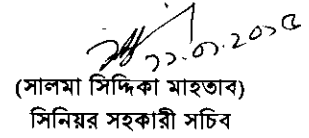 ২২.০১.২০১৫
(সালমা সিদ্দিকা মাহতাব)
সিনিয়র সহকারী সচিব